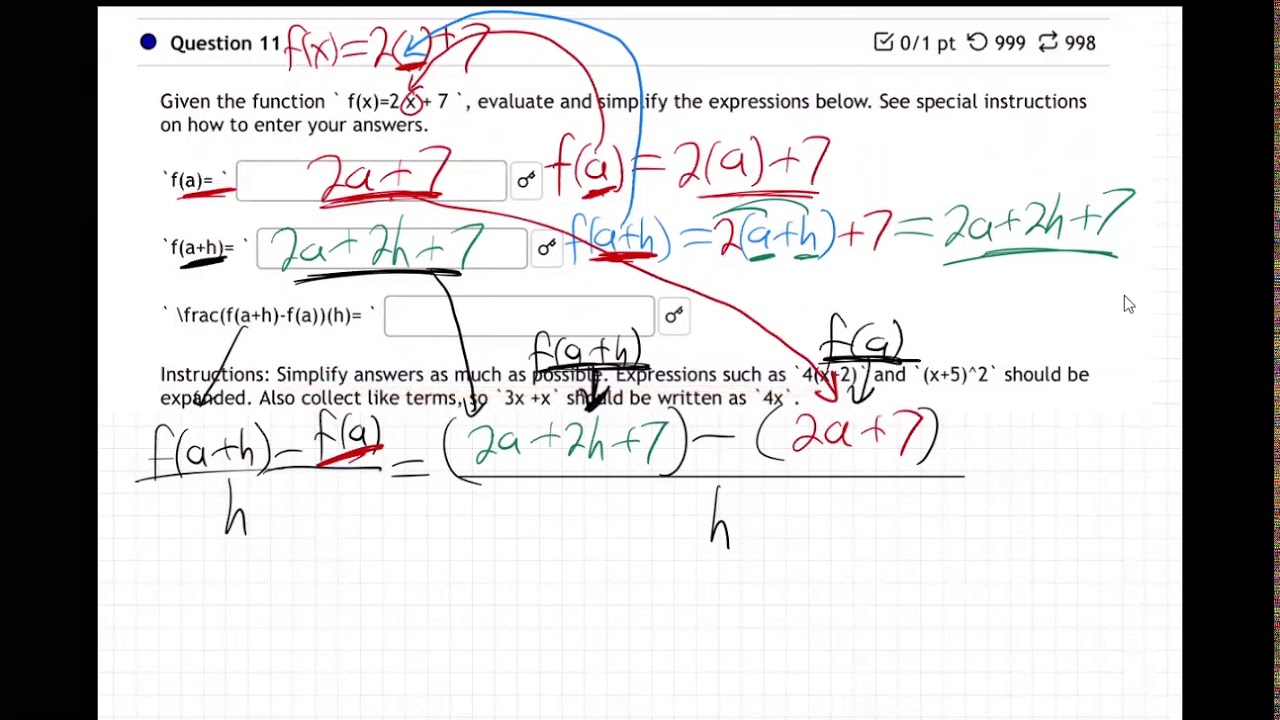 Question 11 f(x)=2( )+7 0/1 pt 999 998
Given the function ` f(x)=2 x + 7 `, evaluate and simplify the expressions below. See special instructions
on how to enter your answers.
`f(a)= ` 2a+7 f(a)=2(a)+7
`f(a+h)= ` 2a+2h+7 f(a+h)=2(a+h)+7=2a+2h+7
` \frac(f(a+h)-f(a))(h)= `
f(a+h) f(a)
Instructions: Simplify answers as much as possible. Expressions such as `4(x+2)` and `(x+5)^2` should be
expanded. Also collect like terms, so `3x +x` should be written as `4x`.
f(a+h)-f(a) = (2a+2h+7)-(2a+7)
h h